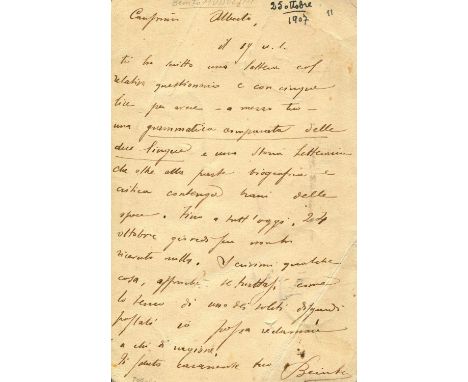 Benito Mussolini
25 ottobre
1907
11
Carissimo Alberto,
il 17 u. s.
ti ho scritto una lettera col
relativo questionario e con cinque
lire per avere — a mezzo tuo —
una grammatica comparata delle
due lingue e una storia letteraria
che oltre alla parte biografica e
critica contenga brani delle
opere. Fino a tutt'oggi, 24
ottobre giovedì sera non ho
ricevuto nulla. Scrivimi qualche
cosa, affinchè se trattasi, come
lo temo di uno dei soliti disguidi
postali io possa reclamare
a chi di ragione.
Ti saluto caramente tuo Benito